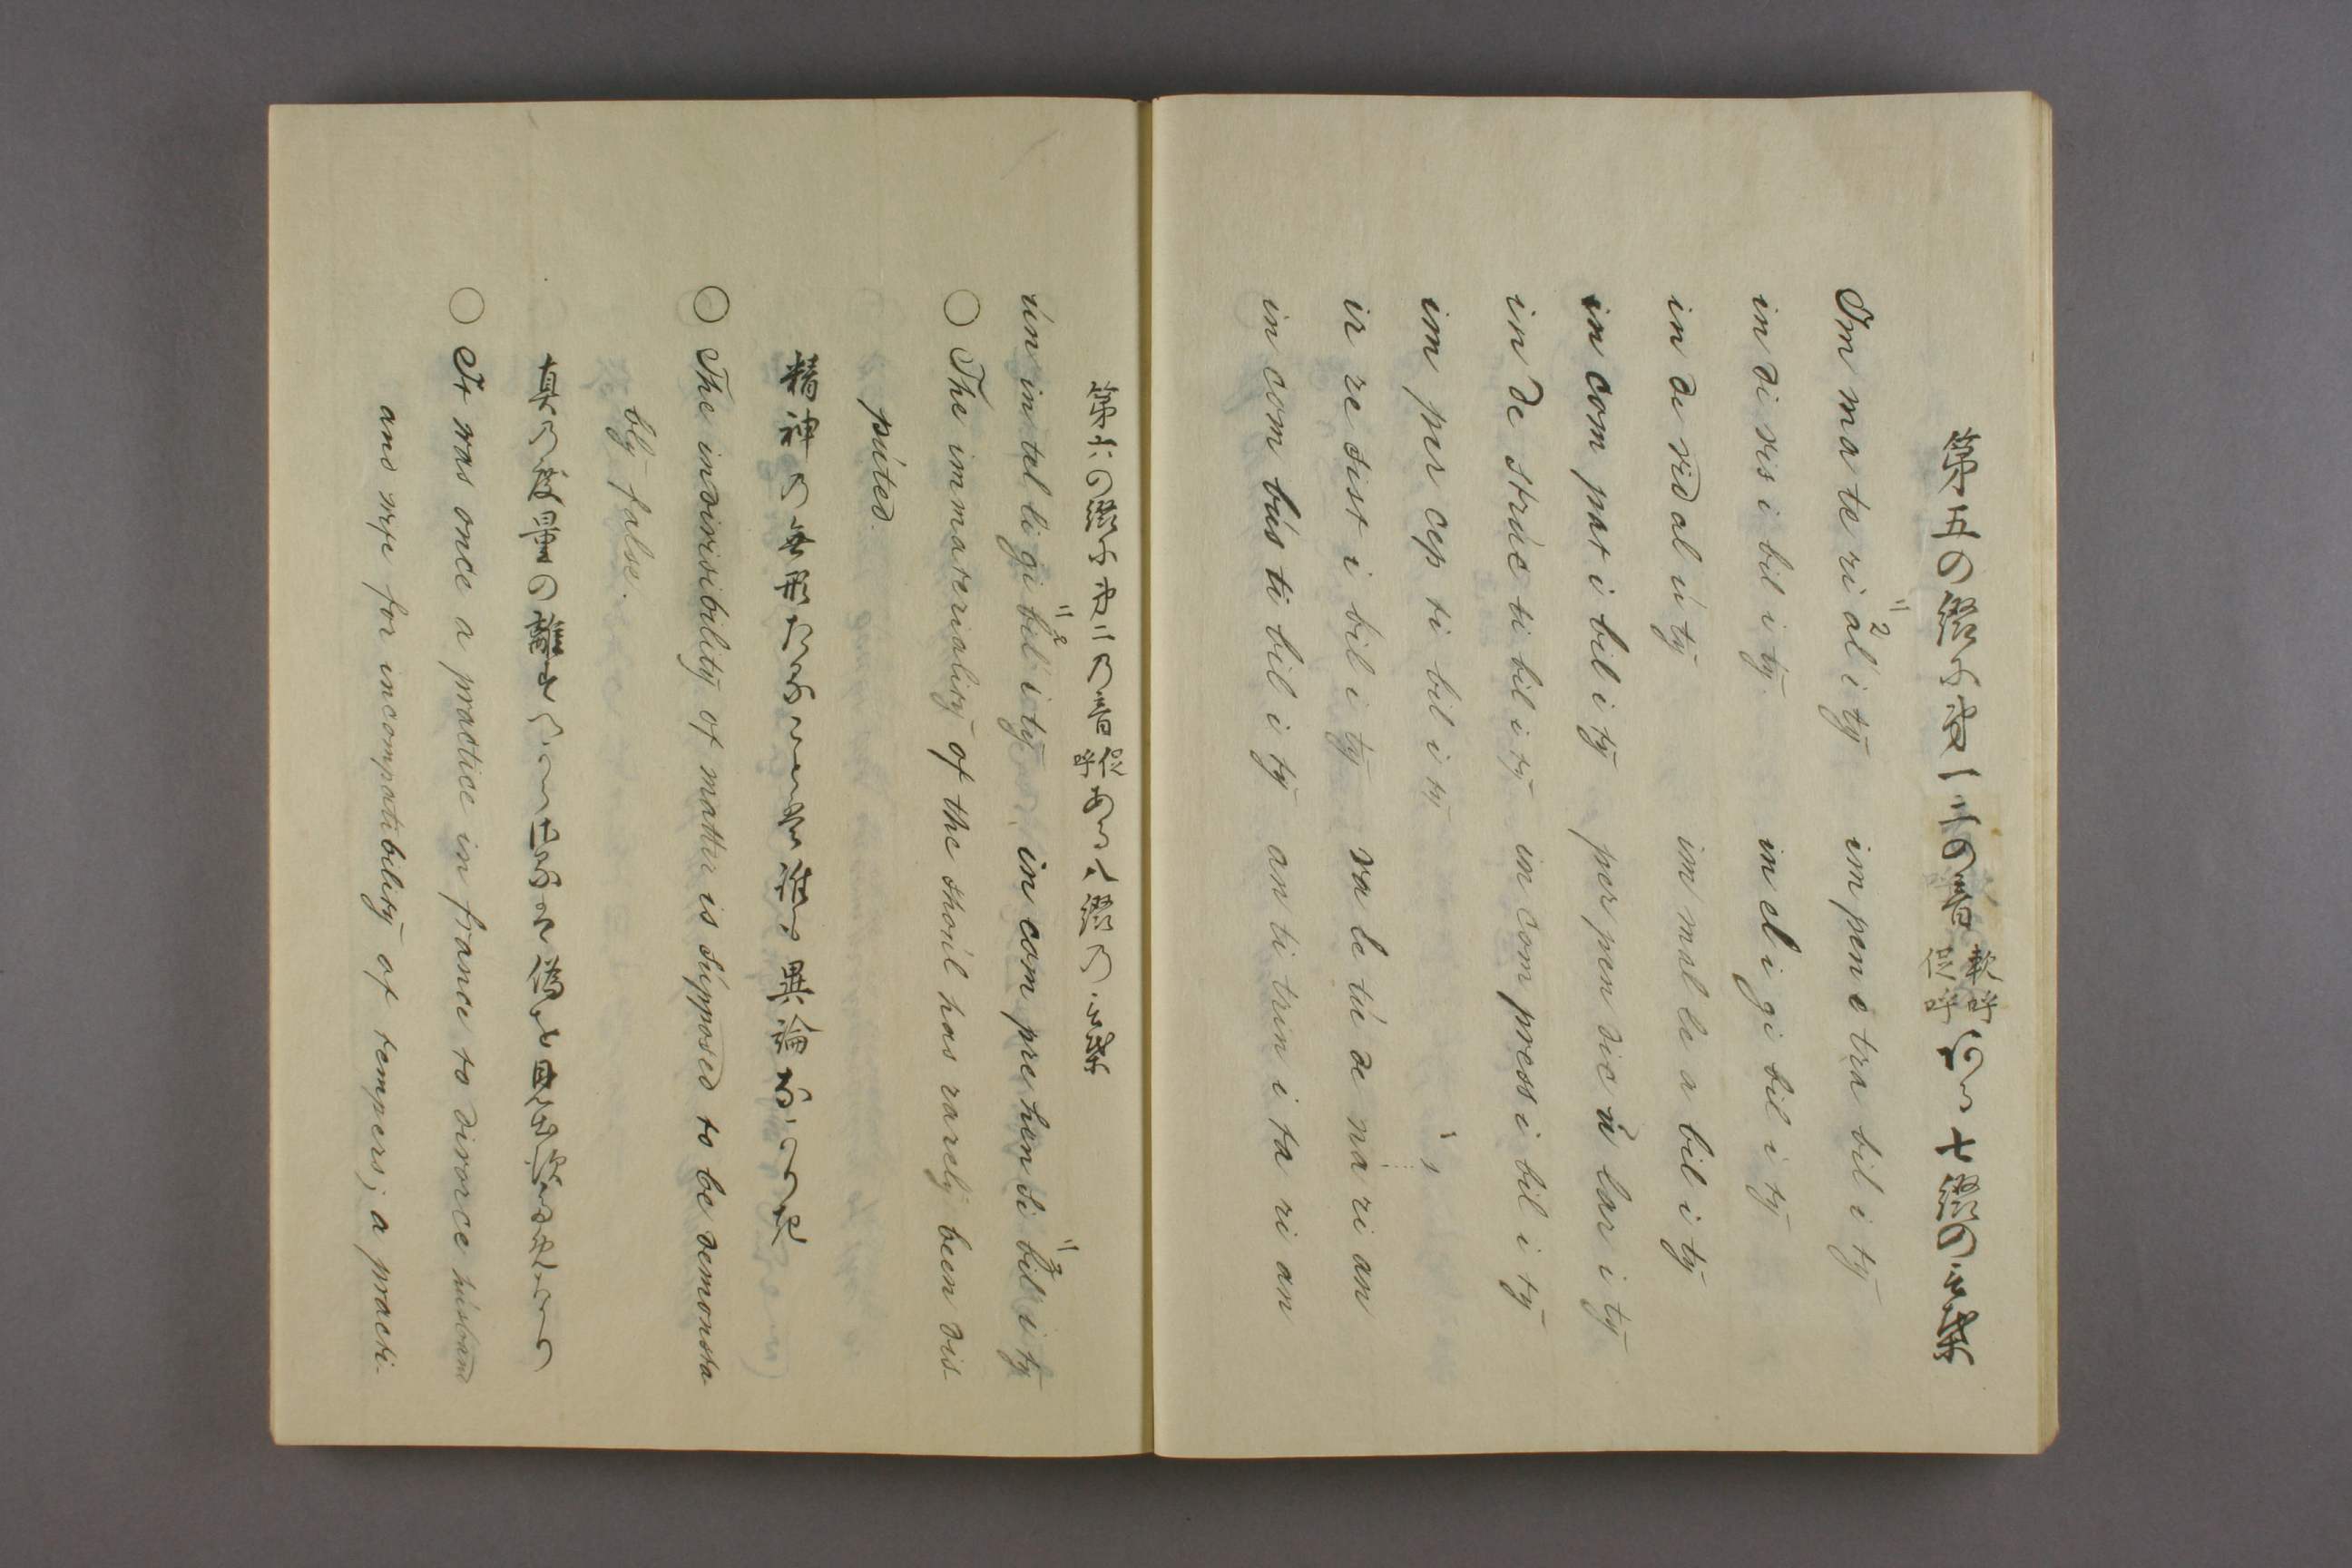 第五の綴字第一二の音 軟呼 促呼 七綴の言葉
Im ma te ri al i ty im pen e tra bil i ty
in di vis i bil i ty in el i gi bil i ty
in di vid al ú ty im mal le a bil i ty
in com pat i bil i ty per pen dic ú lar i ty
in de strúc ti bil i ty in com press i bil i ty
im per cep ti bil i ty
ir re sist i bil i ty va le tú de na ri an
in com bús ti bil i ty an ti trin i ta ri an
第六の綴字第二の音 促呼 綴の言葉
ún in tel li gi bil i ty in com pre hen si bil i ty
○ The immateriality of the shoúl has rarely been dis-
púted.
精神の無形なる 異論
○ The indivisibility of matter is súpposed to be demonsta
bly false.
真の度量の離 偽
○ It was once a practice in france to divorce húsband
and wife for incompatibility of tempers; a practi-